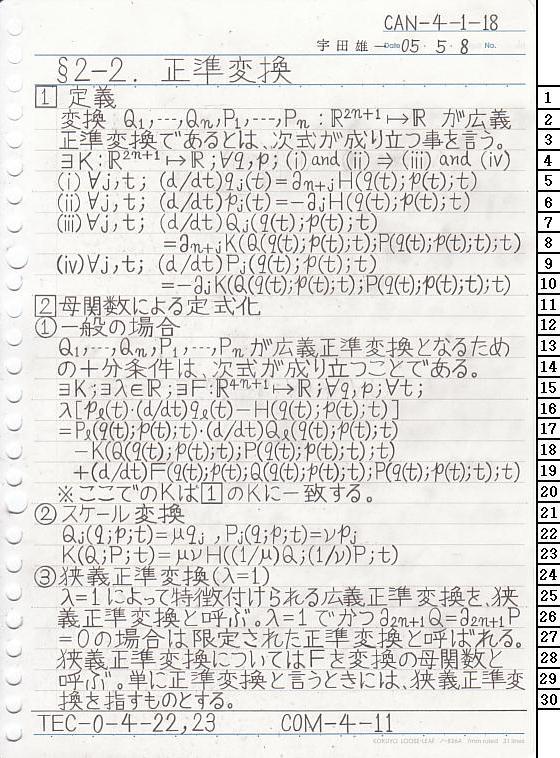 CAN-4-1-18
宇田雄一 Date 05・5・8 No.
§2-2. 正準変換
1 定義
変換 Q₁,…,Qₙ,P₁,…,Pₙ:ℝ²ⁿ⁺¹↦ℝ が広義
正準変換であるとは、次式が成り立つ事を言う。
∃K:ℝ²ⁿ⁺¹↦ℝ;∀q,p;(i) and (ii) ⇒ (iii) and (iv)
(i) ∀j,t; (d/dt)qⱼ(t)=∂ₙ₊ⱼH(q(t);p(t);t)
(ii) ∀j,t; (d/dt)pⱼ(t)=-∂ⱼH(q(t);p(t);t)
(iii) ∀j,t; (d/dt)Qⱼ(q(t);p(t);t)
=∂ₙ₊ⱼK(Q(q(t);p(t);t);P(q(t);p(t);t);t)
(iv)∀j,t; (d/dt)Pⱼ(q(t);p(t);t)
=-∂ⱼK(Q(q(t);p(t);t);P(q(t);p(t);t);t)
2 母関数による定式化
①一般の場合
Q₁,…,Qₙ,P₁,…,Pₙが広義正準変換となるため
の十分条件は、次式が成り立つことである。
∃K;∃λ∈ℝ;∃F:ℝ⁴ⁿ⁺¹↦ℝ;∀q,p;∀t;
λ[pₗ(t)・(d/dt)qₗ(t)-H(q(t);p(t);t)]
=Pₗ(q(t);p(t);t)・(d/dt)Qₗ(q(t);p(t);t)
-K(Q(q(t);p(t);t);P(q(t);p(t);t);t)
+(d/dt)F(q(t);p(t);Q(q(t);p(t);t);P(q(t);p(t);t);t)
※ここでのKは1のKに一致する。
②スケール変換
Qⱼ(q;p;t)=μqⱼ,Pⱼ(q;p;t)=νpⱼ
K(Q;P;t)=μνH((1/μ)Q;(1/ν)P;t)
③狭義正準変換(λ=1)
λ=1によって特徴付けられる広義正準変換を、狭
義正準変換と呼ぶ。λ=1でかつ∂₂ₙ₊₁Q=∂₂ₙ₊₁P
=0の場合は限定された正準変換と呼ばれる。
狭義正準変換についてはFを変換の母関数と
呼ぶ。単に正準変換と言うときには、狭義正準変
換を指すものとする。
TEC-0-4-22,23 COM-4-11
KOKUYO LOOSE-LEAF ノ-836A 7mm ruled 31 lines
1
2
3
4
5
6
7
8
9
10
11
12
13
14
15
16
17
18
19
20
21
22
23
24
25
26
27
28
29
30